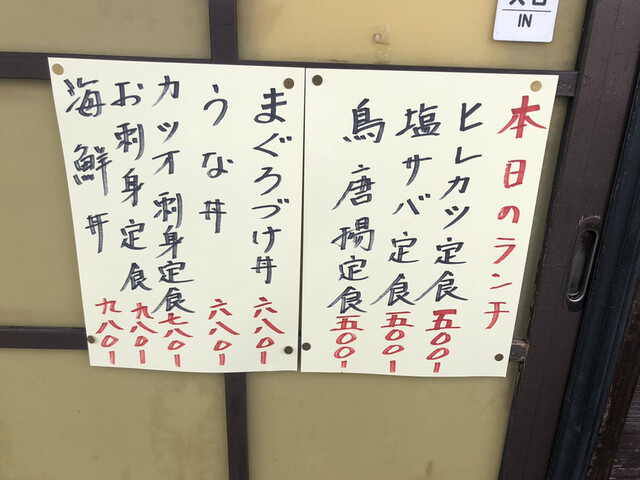 入口
IN
本日のランチ
ヒレカツ定食 五〇〇-
塩サバ定食 五〇〇-
鳥唐揚定食 五〇〇-
まぐろづけ丼 六八〇-
うな丼 六八〇-
カツオ刺身定食 七八〇-
お刺身定食 九八〇-
海鮮丼 九八〇-